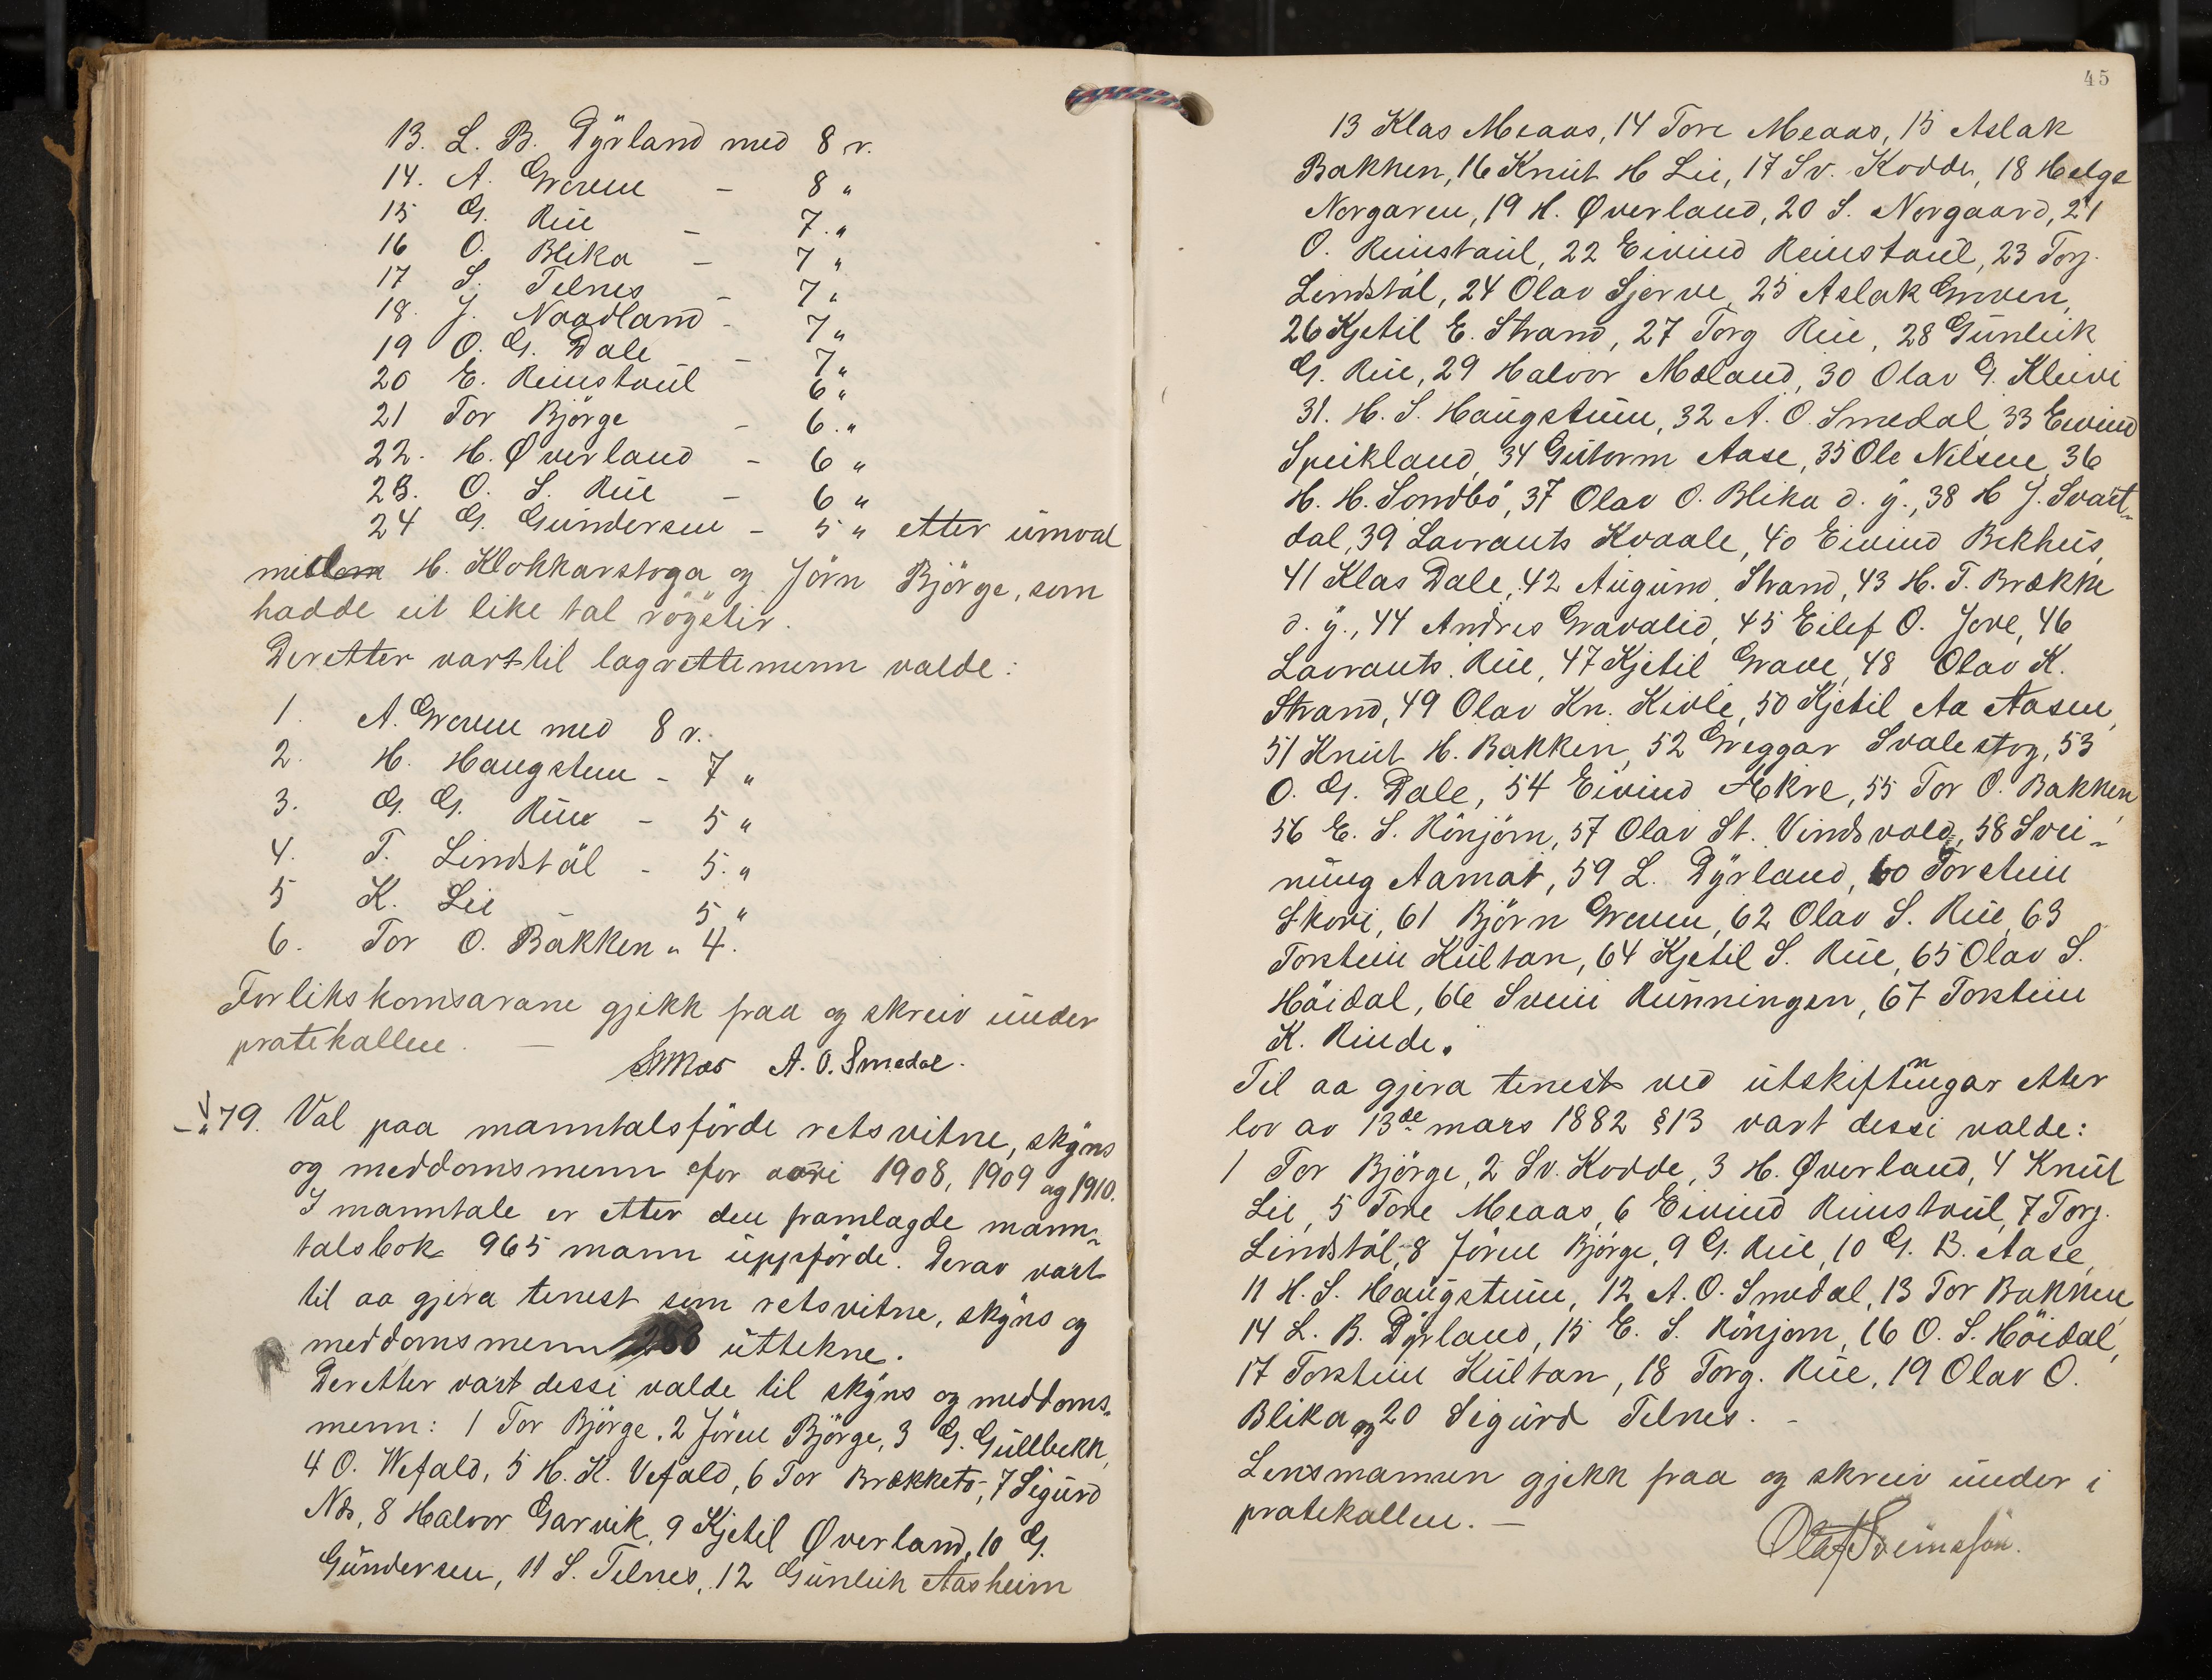 13. L. B. Dyrland med 8 r.
14. A. Graven - 8 "
15 G. Rue - 7. "
16 O. Blika - 7 "
17 S. Telnes - 7 "
18. J. Naadland - 7 "
19 O. G. Dale - 7 "
20 E. Reinstaul 6 "
21 Tor Björge - 6. "
22. H. Øverland - 6 "
23. O. S. Rue - 6 "
24 G. Gundersen - 5 " etter umval
millom H. Klokkarstoga og Jörn Björge, som
hadde eit like tal röyster.
Deretter vart til lagrettemenn valde:
1. A. Graven med 8 r.
2. H. Haugstein - 7 "
3. G. G. Rue - 5 "
4. T. Lindstöl - 5. "
5 K. Lie 5 "
6. Tor O. Bakken " 4.
Forlikskomsarane gjekk fraa og skreiv under
pratekallen. —
A. O. Smedal.
79. Val paa manntalsförde retsvitne, skyns
og meddomsmenn for aari 1908, 1909 og 1910.
I manntale er etter den framlagde mann-
talsbok 965 mann uppförde. Derav vart
til aa gjera tenest som retsvitne, skyns og
meddomsmenn 288 uttekne.
Deretter vart dessi valde til skyns og meddoms-
menn: 1 Tor Björge, 2 Jören Björge, 3 G. Gullbekk,
4 O. Wefald, 5 H. K. Vefald, 6 Tor Brækketo, 7 Sigurd
Næs, 8 Halvor Garvik, 9 Kjetil Øverland, 10 G.
Gundersen, 11 S. Telnes, 12 Gunleik Aasheim
45
13 Klas Meaas, 14 Tore Meaas, 15 Aslak
Bakken, 16 Knut H Lie, 17 Sv. Kodde, 18 Helge
Norgaren, 19 H. Øverland, 20 S. Norgaard, 21
O. Reinstaul, 22 Eivind Reinstaul, 23 Torj.
Lindstöl, 24 Olav Sjerve, 25 Aslak Graven,
26 Kjetil E. Strand, 27 Torg Rue, 28 Gunleik
G. Rue, 29 Halvor Mæland, 30 Olav G. Kleivi
31. H. S. Haugstein, 32 A. O. Smedal, 33 Eivind
Speikland, 34 Gutorm Aase, 35 Ole Nilsen, 36
H. H. Sondbö, 37 Olav O. Blika d. y., 38 H J. Svart-
dal, 39 Lavrants Kvaale, 40 Eivind Bekhus,
41 Klas Dale, 42 Augund Strand, 43 H. T. Brække
d. y., 44 Andres Gravalid, 45 Eilef O. Jore, 46
Lavrants Rue, 47 Kjetil Grave, 48 Olav K.
Strand, 49 Olav Kn. Kivle, 50 Kjetil Aa Aasen,
51 Knut H. Bakken, 52 Greggar Svalestog, 53
O. G. Dale, 54 Eivind Ækre, 55 Tor O. Bakken,
56 E. S. Rönjom, 57 Olav St. Vindsvold, 58 Svei-
nung Aamot, 59 L. Dyrland, 60 Torstein
Skori, 61 Björn Graven, 62 Olav S. Rue, 63
Torstein Kultan, 64 Kjetil S. Rue, 65 Olav S.
Höidal, 66 Svein Runningen, 67 Torstein
K. Rinde.
Til aa gjera tenest ved utskiftningar etter
lov av 13de mars 1882 § 13 vart dessi valde:
1 Tor Björge, 2 Sv. Kodde, 3 H. Øverland, 4 Knut
Lie, 5 Tore Meaas, 6 Eivind Reinstaul, 7 Torj.
Lindstöl, 8 Jören Björge, 9 G. Rue, 10 G. B. Aase,
11 H. S. Haugstein, 12 A. O. Smedal, 13 Tor Bakken,
14 L. B. Dyrland, 15 E. S. Rönjom, 16 O. S. Höidal,
17 Torstein Kultan, 18 Torg. Rue, 19 Olav O.
Blika og 20 Sigurd Telnes. -
Lensmannen gjekk fraa og skreiv under i
pratekallen. —
Olaf Sveinssön.